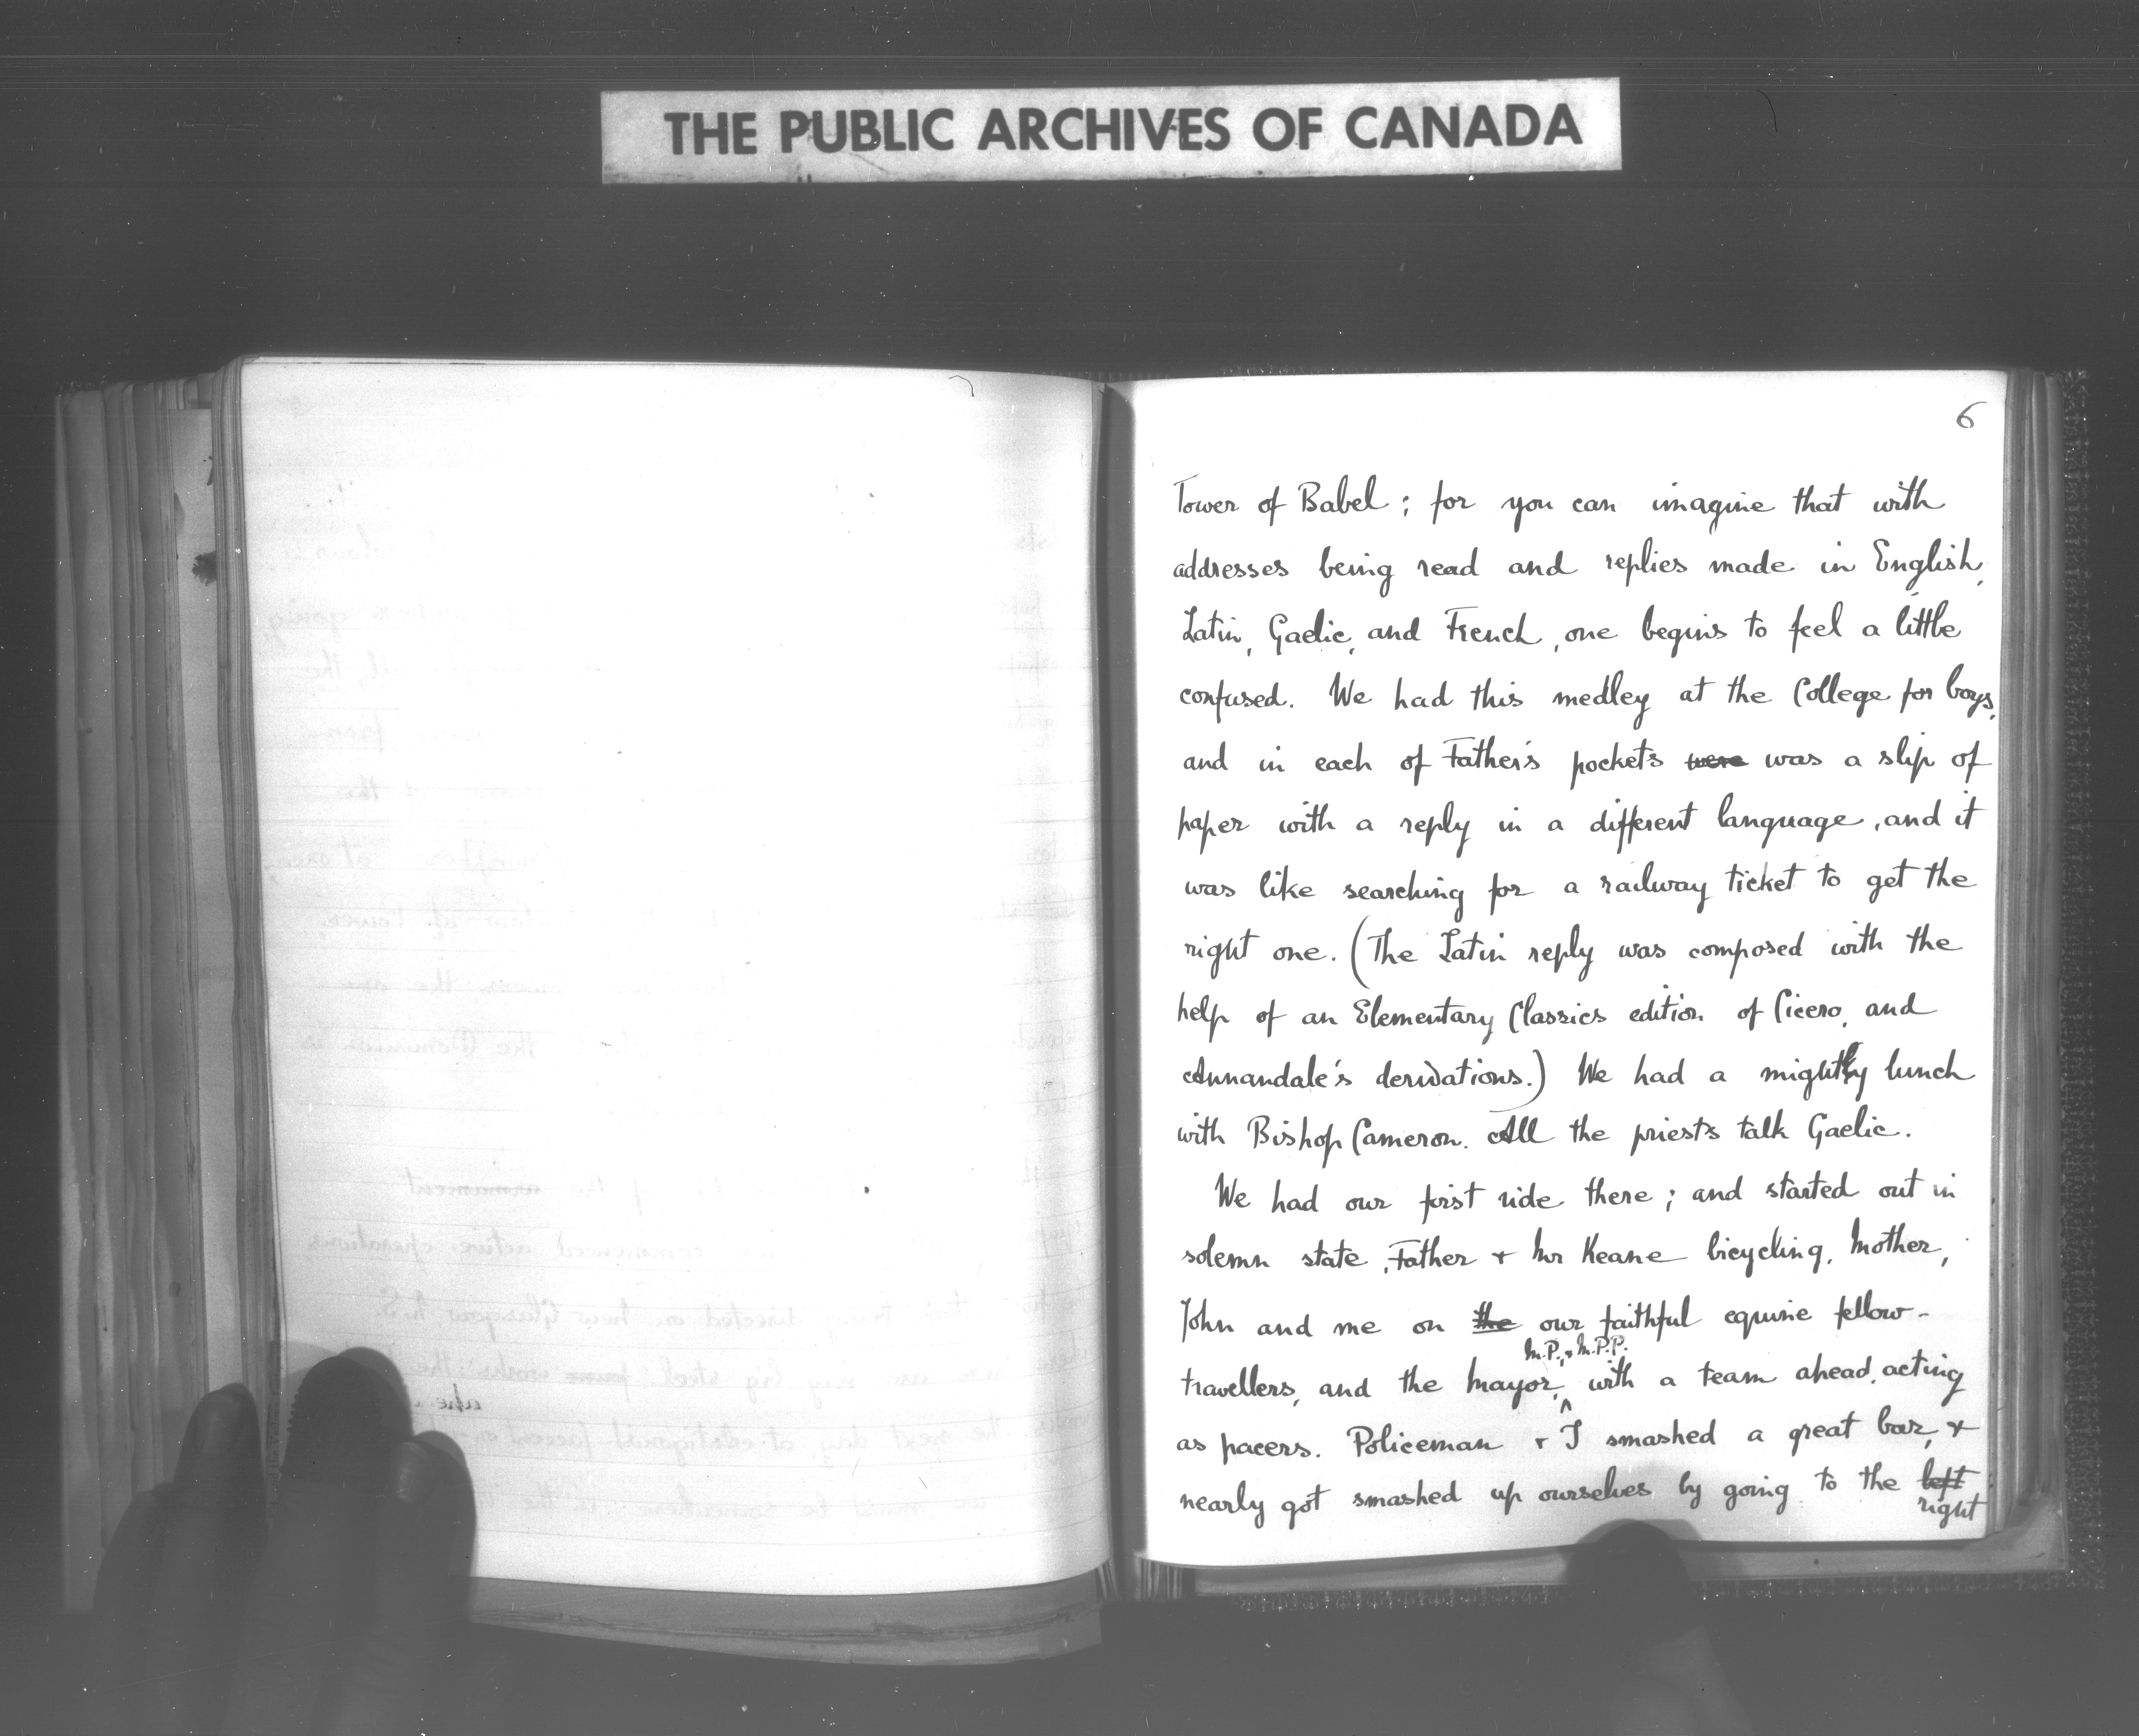 THE PUBLIC ARCHIVES OF CANADA
6
Tower of Babel; for you can imagine that with
addresses being read and replies made in English,
Latin, Gaelic, and French, one begins to feel a little
confused. We had this medley at the College for boys,
and in each of Father's pockets were was a slip of
paper with a reply in a different language, and it
was like searching for a railway ticket to get the
right one. (The Latin reply was composed with the
help of an Elementary Classics edition of Cicero, and
Annandale's derivations.) We had a mighty lunch
with Bishop Cameron. All the priests talk Gaelic.
We had our first ride there; and started out in
solemn state, Father + Mr Keane bicycling, Mother,
John and me on the our faithful equine fellow-
M.P., + M.P.P.
travellers, and the Mayor, with a team ahead, acting
as pacers. Policeman + I smashed a great bar, +
nearly got smashed up ourselves by going to the left
right